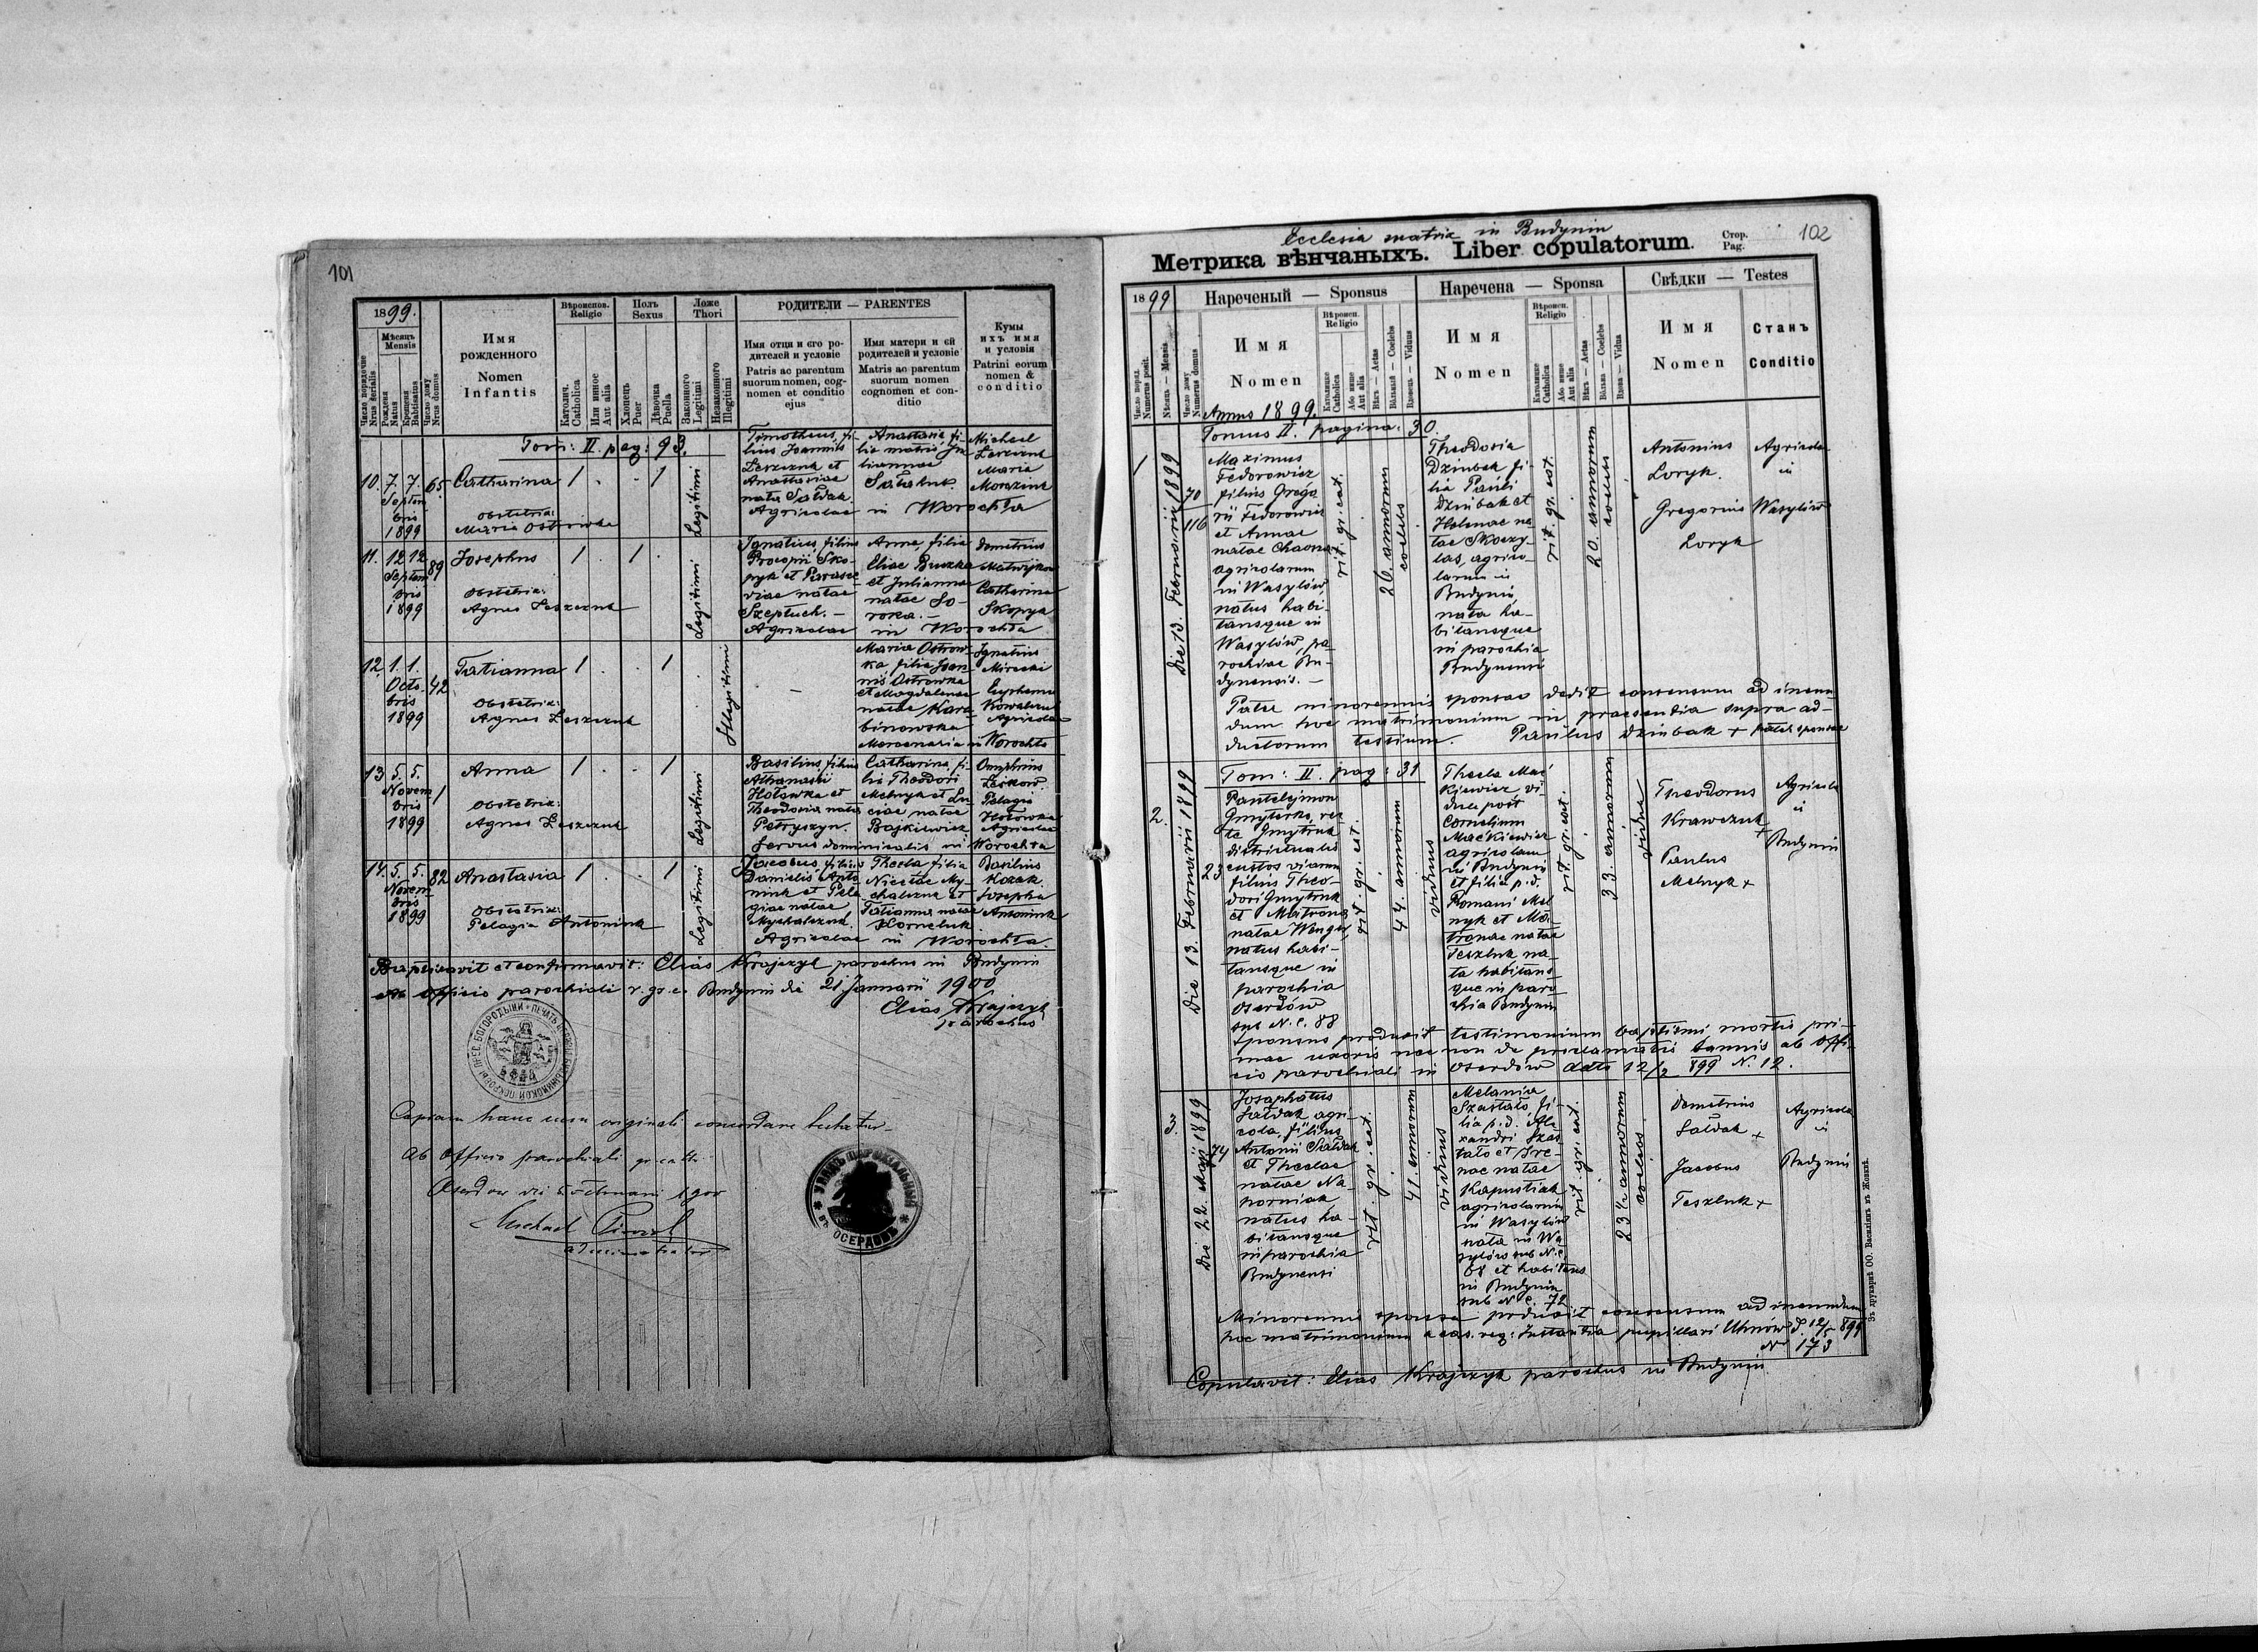 101
1899.
Число порядочне
Nrus serialis
Мѣсяць
Mensis
Рождення
Natus
Крещення
Babtisatus
Число дому
Nrus domus
Имя
рожденного
Nomen
Infantis
Вѣроиспов.
Religio
Католич.
Catholica
Или инное
Aut alia
Полъ
Sexus
Хлопець
Puer
Дѣвочка
Puella
Ложе
Thori
Законного
Legitimi
Незаконного
Illegitimi
РОДИТЕЛИ — PARENTES
Имя отця и єго ро-
дителей и условіє
Patris ac parentum
suorum nomen, cog-
nomen et conditio
ejus
Имя матери и єй
родителей и условіє
Matris ac parentum
suorum nomen
cognomen et con-
ditio
Кумы
ихъ имя
и условія
Patrini eorum
nomen &
conditio
Tom: II. pag: 93.
10. 7. 7. 65. Catharina 1 . . 1
Septem
bris
1899
obstetrix:
Maria Ostrowka
Legitimi
Timotheus, fi-
lius Joannis
Leszczuk et
Anastasiae
nata Sałdak.
Agricolae in Worochta
Anastasia fi-
Michael
Leszczuk
Maria
11. 12 12 89 Josephus 1 . 1 .
Septem
bris
1899
obstetrix:
Agnes Leszczuk
Legitimi
Ignatius, filius
Procopii Sko-
pyk et Parasce
viae natae
Szeptuch. —
Agricolae in Worochta
Anna, filia
Eliae Buczka
et Julianna
natae So-
roka. —
Demetrius
Catharina
Skopyk
12. 1. 1. 42 Tatianna 1 . . 1
Octo-
bris
1899
obstetrix:
Agnes Leszczuk
Illegitimi
—
Maria Ostrow-
ka filia Joan-
nis Ostrowka
et Magdalenae
natae Kara-
binowska
Mercenaria in Worochta
Ignatius
Mirecki
Kowalczuk
Agricolae
13 5. 5. 1 Anna 1 . . 1
Novem
bris
1899
obstetrix:
Agnes Leszczuk
Legitimi
Basilius, filius
Athanasii
Hołowka et
Theodosia nata
Petryszyn.
Servus dominicalis in Worochta
Catharina, fi-
lia Theodori
Melnyk et Lu-
ciae natae
Bajkiewicz.
Onuphrius
Pelagia
Hołowka
Agricolae
14. 5. 5. 82 Anastasia 1 . . 1
Novem-
bris
1899
obstetrix:
Pelagia Antoniuk
Legitimi
Jacobus, filius
Danielis Anto
niuk et Pela
giae natae
Mychalczuk.
Agricolae in Worochta.
Thecla filia
Nicetae My-
chalczuk et
Tatianna natae
Korneluk
Basilius
Kozak.
Josepha
Antoniuk
Baptisavit et confirmavit: Elias Krajczyk parochus in Budynin
Ab officio parochiali r. gr. c. Budynin die 21 Januarii 1900
Elias Krajczyk
parochus
Copiam hanc cum originali concordare testatur
Ab Officio parochiali gr. cath.
Oserdow die 5. Februarii 1900
Michael
administrator
УРЯДЪ ПАРОХІАЛЬНЫЙ
ВЪ ОСЕРДОВѢ
Ecclesia matrix in Budynin
Метрика вѣнчаныхъ. Liber copulatorum.
Стор.
Pag.
102
1899
Число поряд.
Numerus posit.
Мѣсяць — Mensis
Число дому
Numerus domus
Нареченый — Sponsus
Имя
Nomen
Вѣроисп.
Religio
Католицке
Catholica
Або инше
Aut alia
Вѣкъ — Aetas
Вôльный — Coelebs
Вдовець — Viduus
Наречена — Sponsa
Имя
Nomen
Вѣроисп.
Religio
Католицке
Catholica
Або инше
Aut alia
Вѣкъ — Aetas
Вôльна — Coelebs
Вдова — Vidua
Свѣдки — Testes
Имя
Nomen
Станъ
Conditio
Anno 1899.
Tomus II. pagina: 30.
1
Die 13. Februarii 1899
70
116
Maximus
Fedorowicz
filius Grego
rii Fedorowicz
et Annae
natae Chaona
agricolarum
in Wasylów,
natus habi-
tansque in
Wasylów, pa-
rochiae Bu-
dynensis. —
rit. gr. cat.
26. annorum
coelebs
Theodosia
Dziubak fi-
lia Pauli
Dziubak et
Helenae na-
tae Skoczy-
las, agrico-
larum in
Budynin
nata ha-
bitansque
in parochia
Budynensi
rit. gr. cat.
20. annorum
coelebs
Antonius
Loryk.
Gregorius
Loryk
Agricolae
in
Wasylów
Pater minorennis sponsae dedit consensum ad ineun
dum hoc matrimonium in praesentia supra ad-
ductorum testium. Paulus Dziubak + pater sponsae
Tom: II. pag: 31
2.
Die 13. Februarii 1899
23
Pantelejmon
Gmyterko, rec-
te Gmytruk
districtualis
custos viarum
filius Theo-
dori Gmytruk
et Matrona
natae Wenger
natus habi-
tansque in
parochia
Oserdów
sub N. C. 88
rit. gr. cat.
44. annorum
viduus
Thecla Mać
kiewicz vi-
dua post
Cornelium
Maćkiewicz
agricolam
in Budynin
et filia p. d.
Romani Mel
nyk et Ma-
tronae natae
Teszluk na-
ta habitans
que in paro
chia Budynin
rit. gr. cat.
33. annorum
vidua
Theodorus
Krawczuk
+
Paulus
Melnyk +
Agricolae
in
Budynin
Sponsus produxit testimonium baptismi mortis pri-
mae uxoris nec non de proclamatis bannis ab Offi-
cio parochiali in Oserdów ddto 12/2 899 N. 12.
3.
Die 22. Maji 1899
74
Josaphatus
Sałdak agri-
cola, filius
Antonii Sałdak
et Theclae
natae Na-
porniak
natus ha-
bitansque
in parochia
Budynensi
rit. gr. cat.
41. annorum
viduus
Melania
Szastało, fi-
lia p. d. Ale
xandri Szas
tało et Ire-
nae natae
Kapustiak
agricolarum
in Wasylów
nata in Wa
sylów sub N. C.
et habitans
in Budynin
sub N C. 72
rit. gr. cat.
23½ annorum
coelebs
Demetrius
Sałdak +
Jacobus
Teszluk +
Agricolae
in
Budynin
Minorennis sponsa produxit consensum ad ineundum
hoc matrimonium a caes. reg: Instantia pupillari Uhnów d. 12/5 899
No 173
Copulavit: Elias Krajczyk parochus in Budynin
Зъ друкарнѣ ОО. Василіянъ въ Жовквѣ.